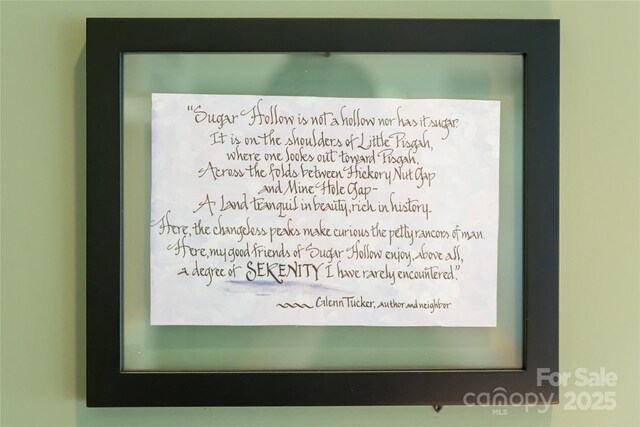 "Sugar Hollow is not a hollow nor has it sugar.
It is on the shoulders of Little Pisgah,
where one looks out toward Pisgah,
Across the folds between Hickory Nut Gap
and Mine Hole Gap-
A Land tranquil in beauty, rich in history.
Here, the changeless peaks make curious the petty rancors of man.
Here, my good friends of Sugar Hollow enjoy, above all,
a degree of SERENITY I have rarely encountered."
Glenn Tucker, author and neighbor
For Sale
canopy 2025
MLS